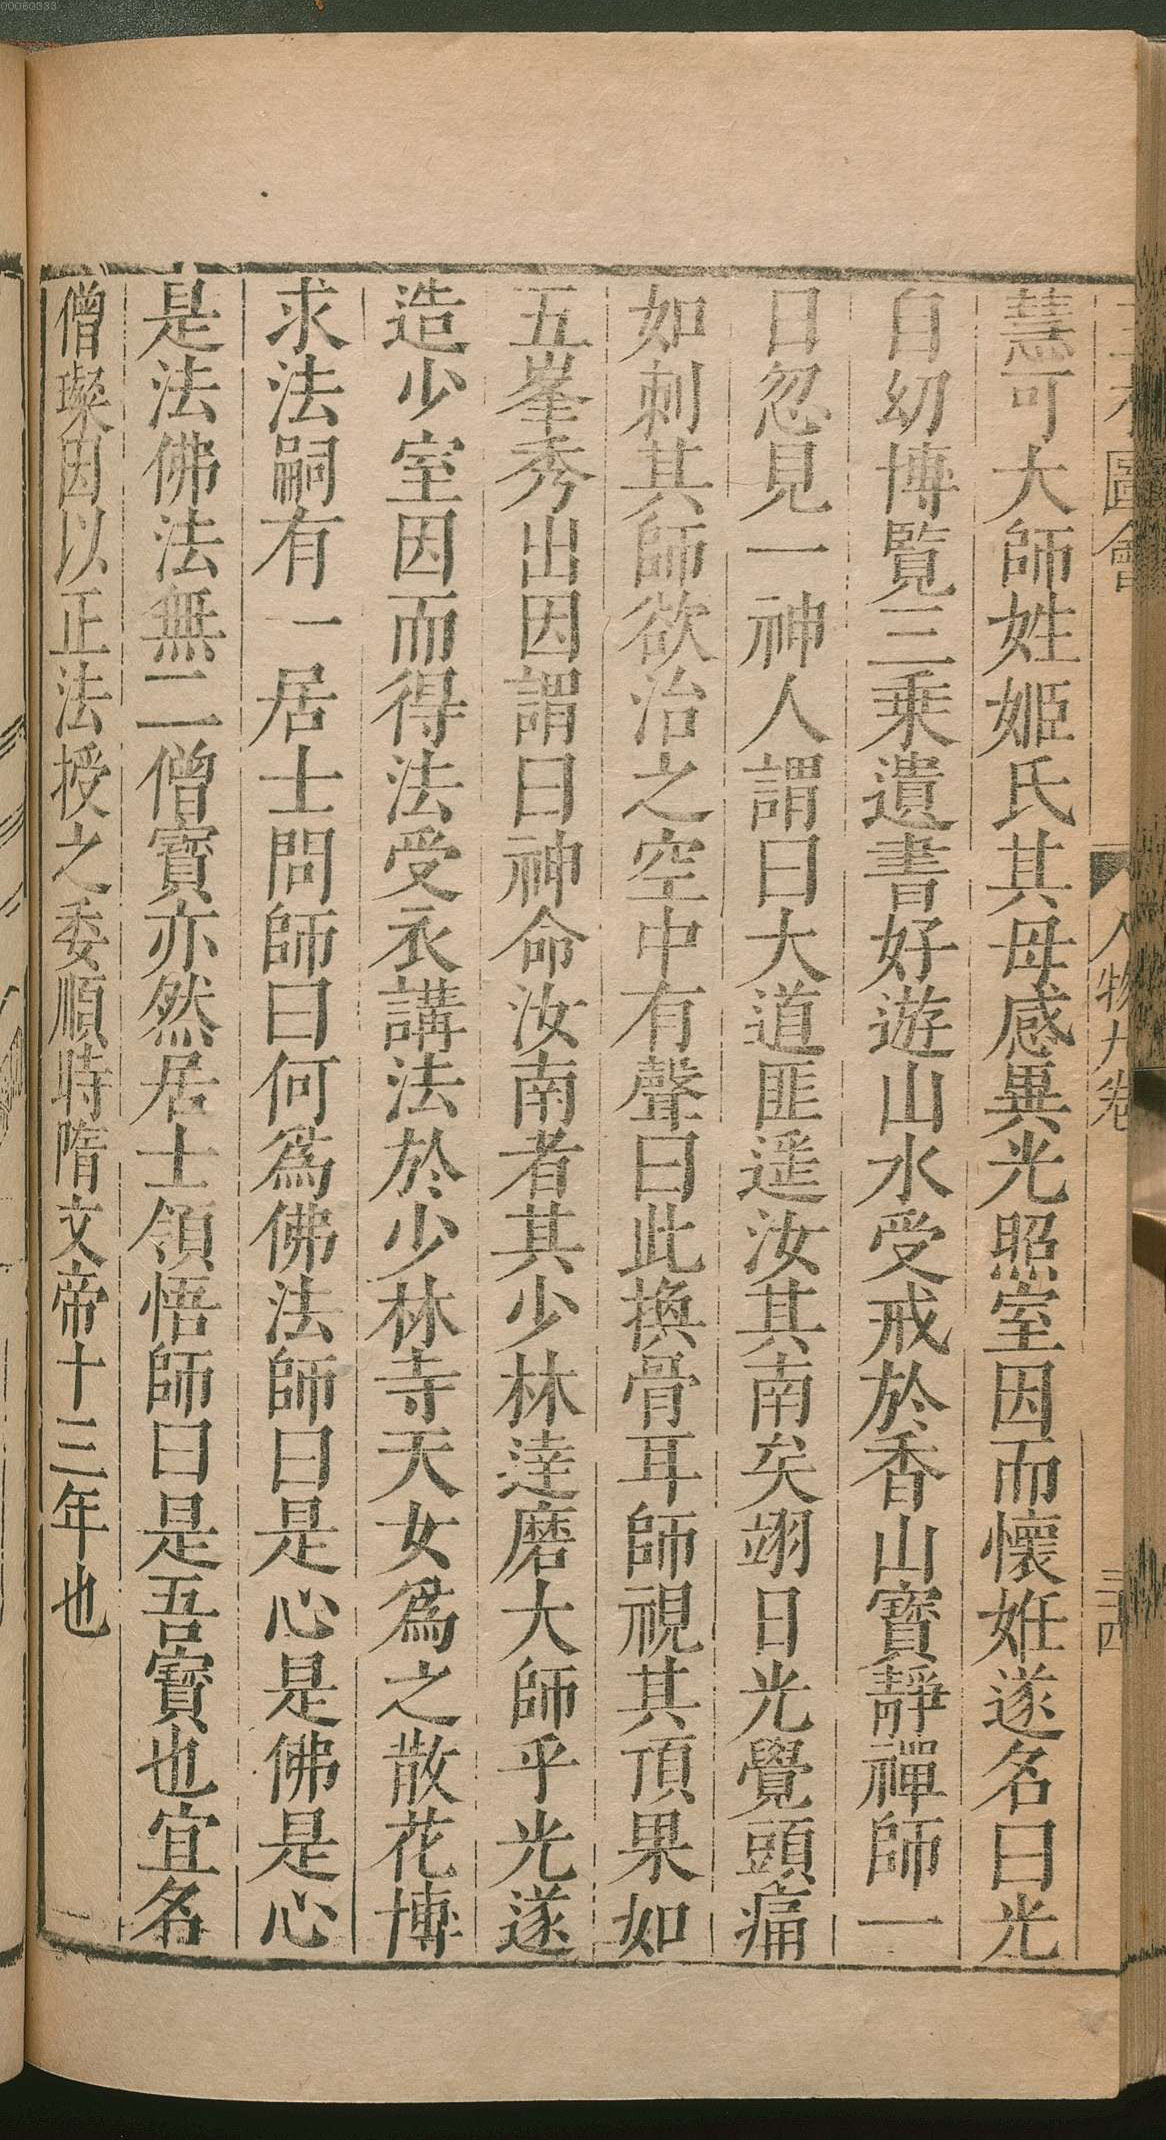 00060033
三才圖會 人物九卷 三四
慧可大師姓姬氏其母感異光照室因而懷姙遂名曰光
自幼博覽三乘遺書好遊山水受戒於香山寶靜禪師一
日忽見一神人謂曰大道匪遥汝其南矣翊日光覺頭痛
如刺其師欲治之空中有聲曰此換骨耳師視其頂果如
五峯秀出因謂曰神命汝南者其少林逹磨大師乎光遂
造少室因而得法受衣講法於少林寺天女爲之散花博
求法嗣有一居士問師曰何爲佛法師曰是心是佛是心
是法佛法無二僧寶亦然居士領悟師曰是吾寶也宜名
僧璨因以正法授之委順時隋文帝十三年也